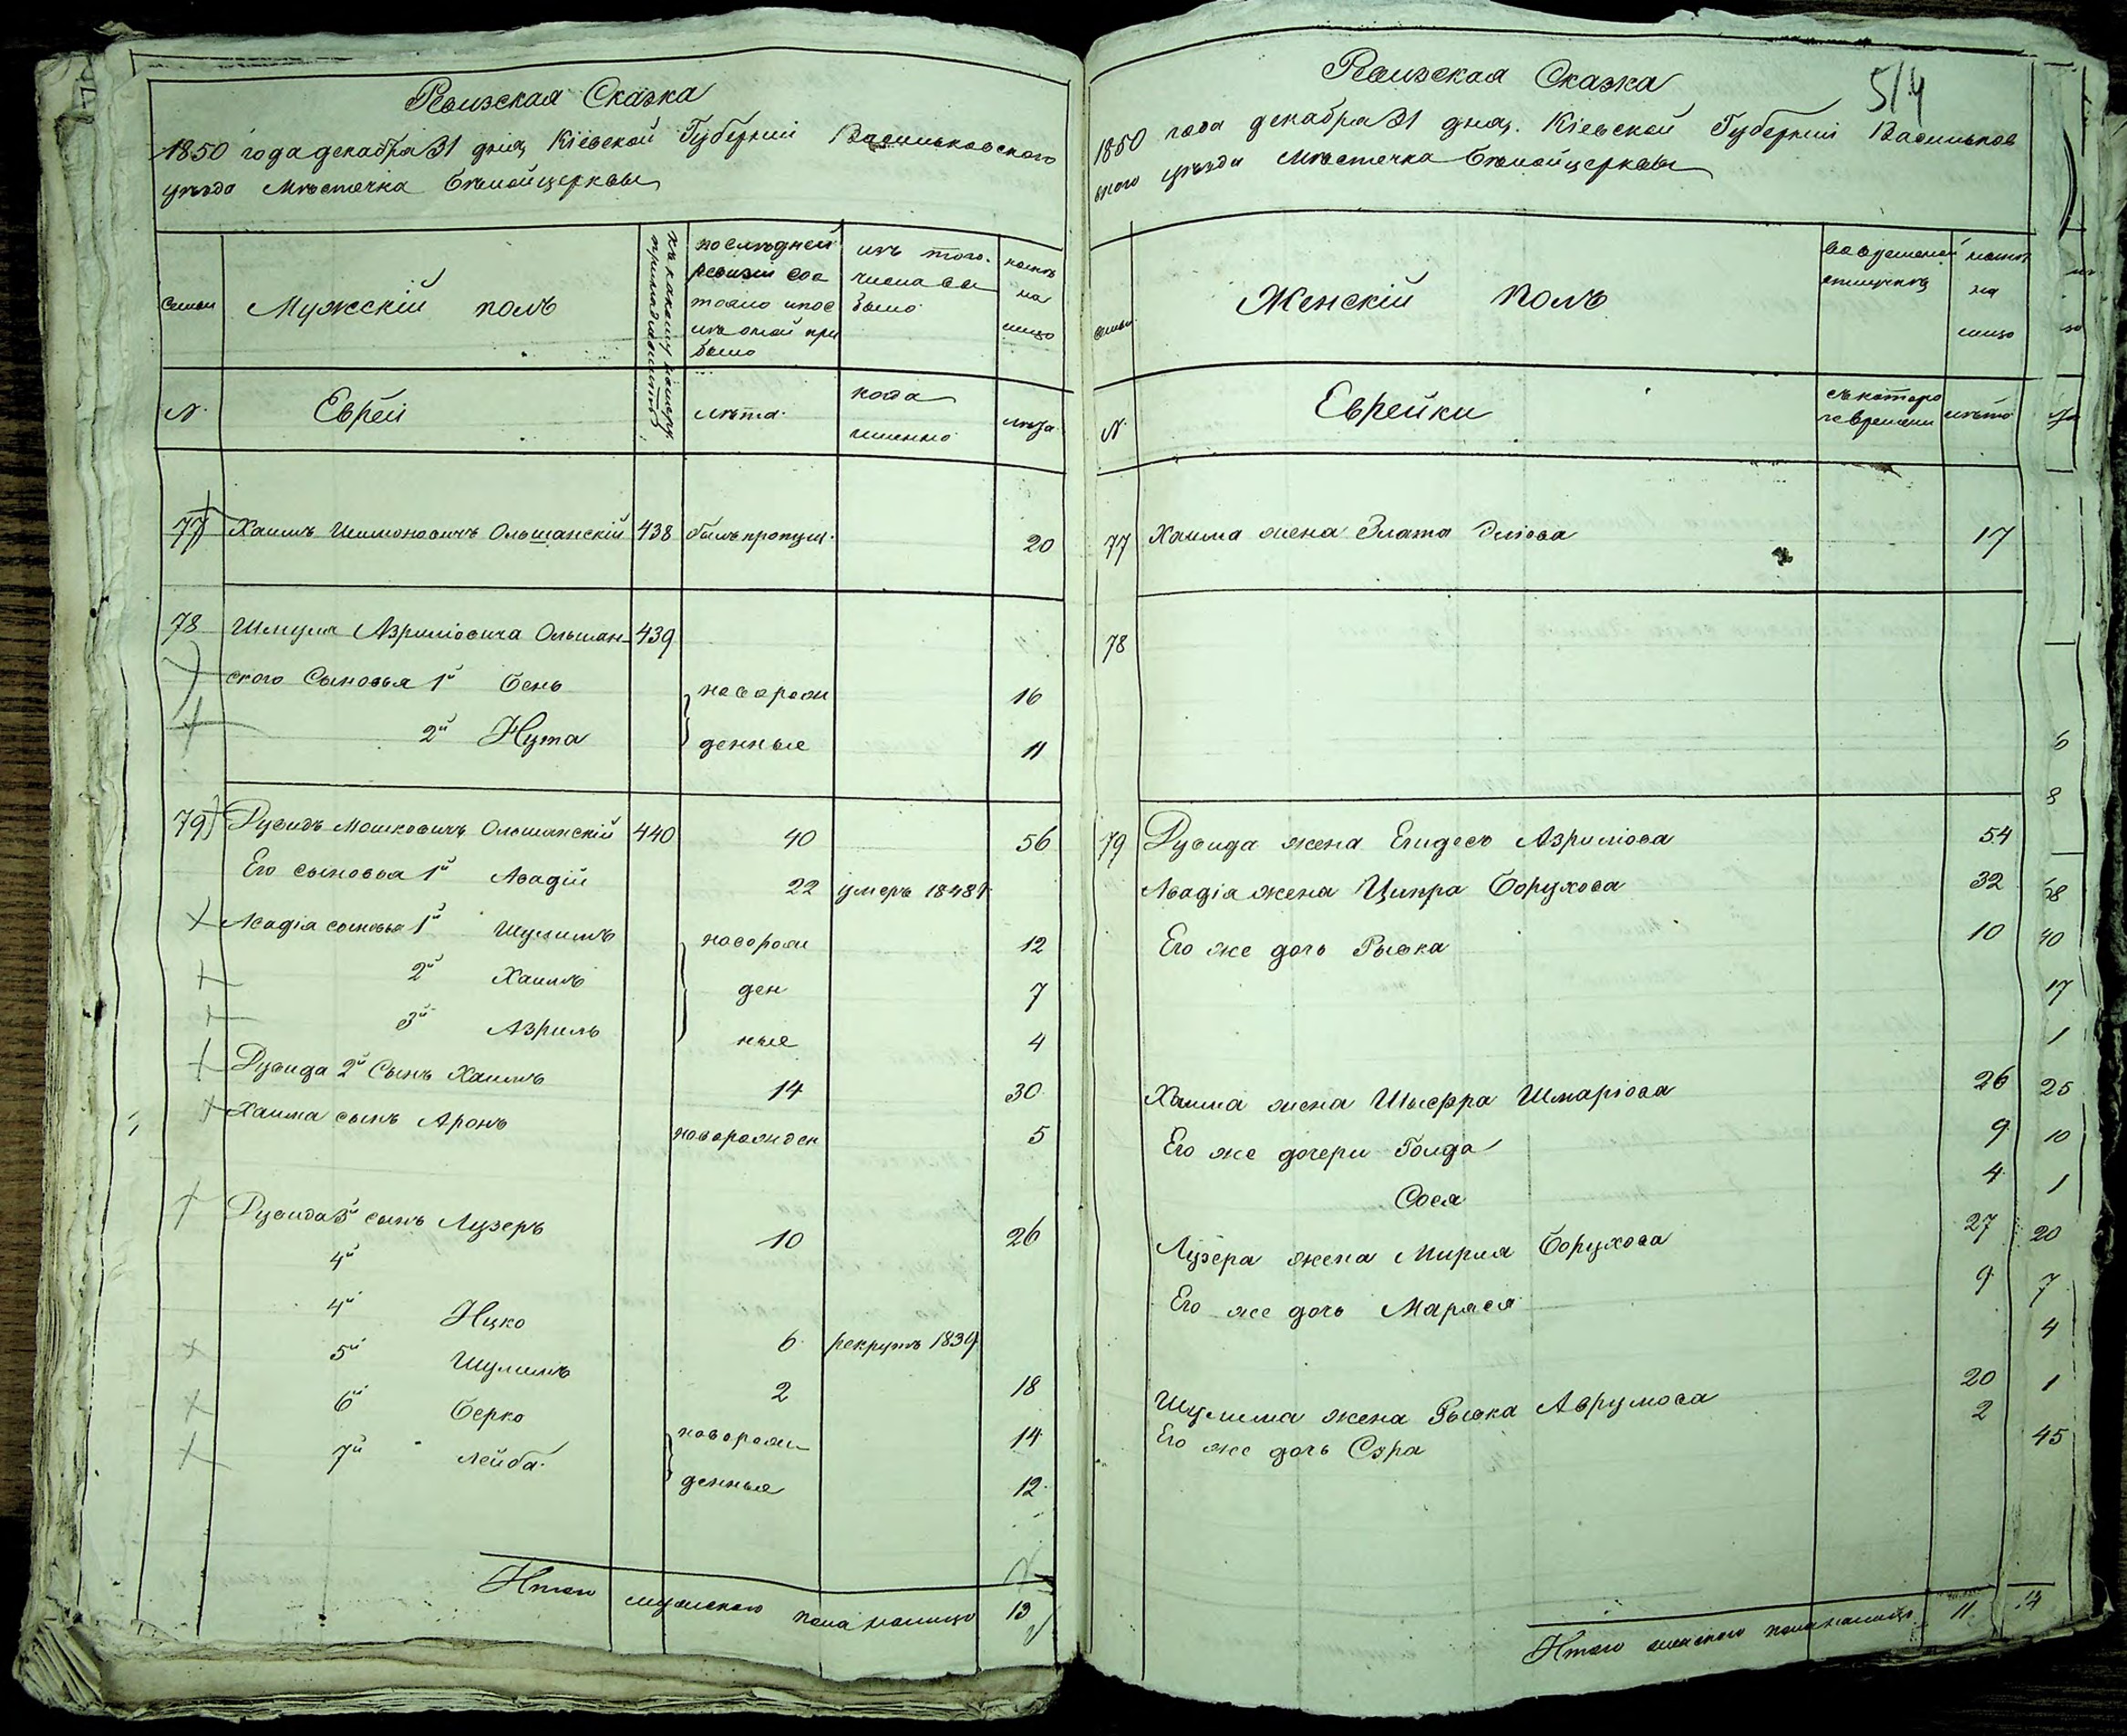 Ревизская Сказка
1850 года декабря 31 дня, Кіевской Губерніи Васильковского
уѣзда Мѣстечка Бѣлойцеркви
семьи
Мужскій полъ
къ какому номеру принадлежитъ
последней ревизіи сос тояло ипос лѣ оной при было
изъ того числа вы было
нынѣ на лицо
№.
Еврѣи
лѣта.
когда именно
лѣта
77 Хаимъ Шимоновичъ Ольшанскій 438 былъ пропущ. 20
78 Шмуля Азриліовича Ольшан- 439
ского Сыновья 1й Бень новорож 16
2й Нута денные 11
79 Дувидъ Мошковичъ Ольшанскій 440 40 56
Его сыновья 1й Авадій 22 умеръ 1848
Авадія сыновья 1й Шулимъ новорож 12
2й Хаимъ ден 7
3й Азриль ные 4
Дувида 2й Сынъ Хаимъ 14 30
Хаима сынъ Аронъ новорожден 5
Дувида 3й сынъ Лузеръ 10 26
4й
4й Ицко 6 рекрутъ 1839
5й Шулимъ 2 18
6й Берко новорож 14
7й Лейба. денные 12
Итого мужского пола налицо 13
Ревизская Сказка
514
1850 года декабря 31 дня. Кіевской Губерніи Васильков
ского уѣзда Мѣстечка Бѣлойцеркви
семьи
Женскій полъ
вовременой отлучкѣ
нынѣ на лицо
№.
Еврейки
съкоторо говремени
лѣта
77 Хаима жена Злата Эліова 17
78
79 Дувида жена Ельдесъ Азриліова 54
Авадія жена Ципра Борухова 32
Его же дочь Рывка 10
Хаима жена Шысфра Шмаріова 26
Его же дочери Голда 9
Сося 4
Лузера жена Мирля Борухова 27
Его же дочь Маряся 9
Шулима жена Рывка Аврумова 20
Его же дочь Сэра 2
Итого женского пола налицо 11
6
8
28
40
17
1
25
10
1
20
7
4
1
45